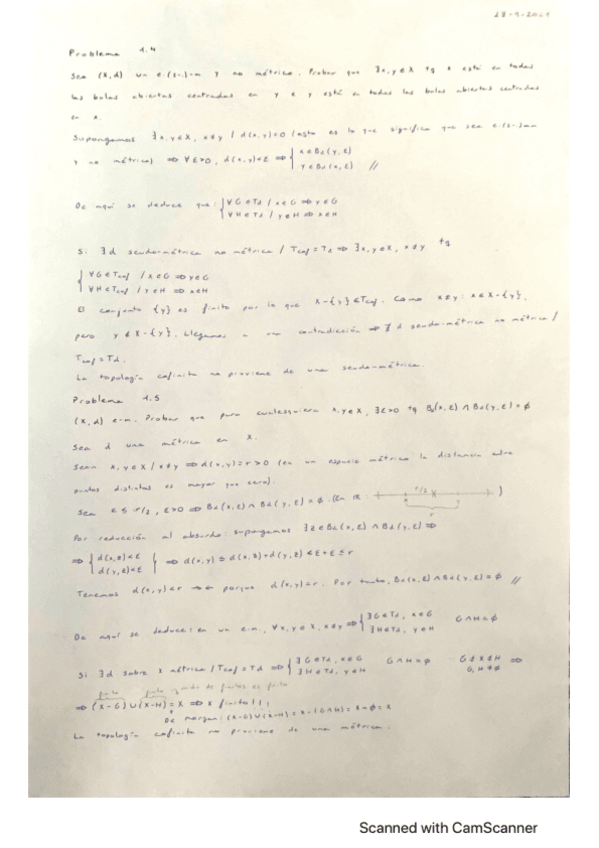 28-9-2021
Problema 1.4
Sea (X,d) un e.(s-)-m y no métrico. Probar que ∃x,y∈X tq x está en todas
las bolas abiertas centradas en y e y está en todas las bolas abiertas centradas
en x.
Supongamos ∃x,y∈X, x≠y / d(x,y)=0 (esto es lo que significa que sea e.(s-)m
y no métrico) ⇒ ∀ε>0, d(x,y)<ε ⇒ { x∈Bd(y,ε)
y∈Bd(x,ε) //
De aquí se deduce que: { ∀G∈Td / x∈G ⇒ y∈G
∀H∈Td / y∈H ⇒ x∈H
Si ∃d seudométrica no métrica / Tcof = Td ⇒ ∃x,y∈X, x≠y tq
{ ∀G∈Tcof / x∈G ⇒ y∈G
∀H∈Tcof / y∈H ⇒ x∈H
El conjunto {y} es finito por lo que X-{y}∈Tcof. Como x≠y: x∈X-{y},
pero y∉X-{y}. Llegamos a una contradicción ⇒ ∄ d seudométrica no métrica /
Tcof = Td.
La topología cofinita no proviene de una seudométrica.
Problema 1.5
(X,d) e-m. Probar que para cualesquiera x,y∈X, ∃ε>0 tq Bd(x,ε) ∩ Bd(y,ε) = ∅
Sea d una métrica en X.
Sean x,y∈X / x≠y ⇒ d(x,y)=r>0 (en un espacio métrico la distancia entre
puntos distintos es mayor que cero).
Sea ε≤r/2, ε>0 ⇒ Bd(x,ε) ∩ Bd(y,ε) = ∅. (En ℝ: r/2 r )
Por reducción al absurdo: supongamos ∃z∈Bd(x,ε) ∩ Bd(y,ε) ⇒
⇒ { d(x,z)<ε
d(y,z)<ε } ⇒ d(x,y) ≤ d(x,z)+d(y,z) < ε+ε ≤ r
Tenemos d(x,y)<r →← porque d(x,y)=r. Por tanto, Bd(x,ε)∩Bd(y,ε)=∅ //
De aquí se deduce: en un e.m, ∀x,y∈X, x≠y ⇒ { ∃G∈Td, x∈G
∃H∈Td, y∈H G∩H=∅
Si ∃d sobre X métrica / Tcof = Td ⇒ { ∃G∈Td, x∈G
∃H∈Td, y∈H G∩H=∅ G≠X≠H ⇒
G,H≠∅
finito finito unión de finitos es finito
⇒ (X-G)∪(X-H) = X ⇒ X finito!!
De Morgan: (X-G)∪(X-H) = X-(G∩H) = X-∅ = X
La topología cofinita no proviene de una métrica.
Scanned with CamScanner